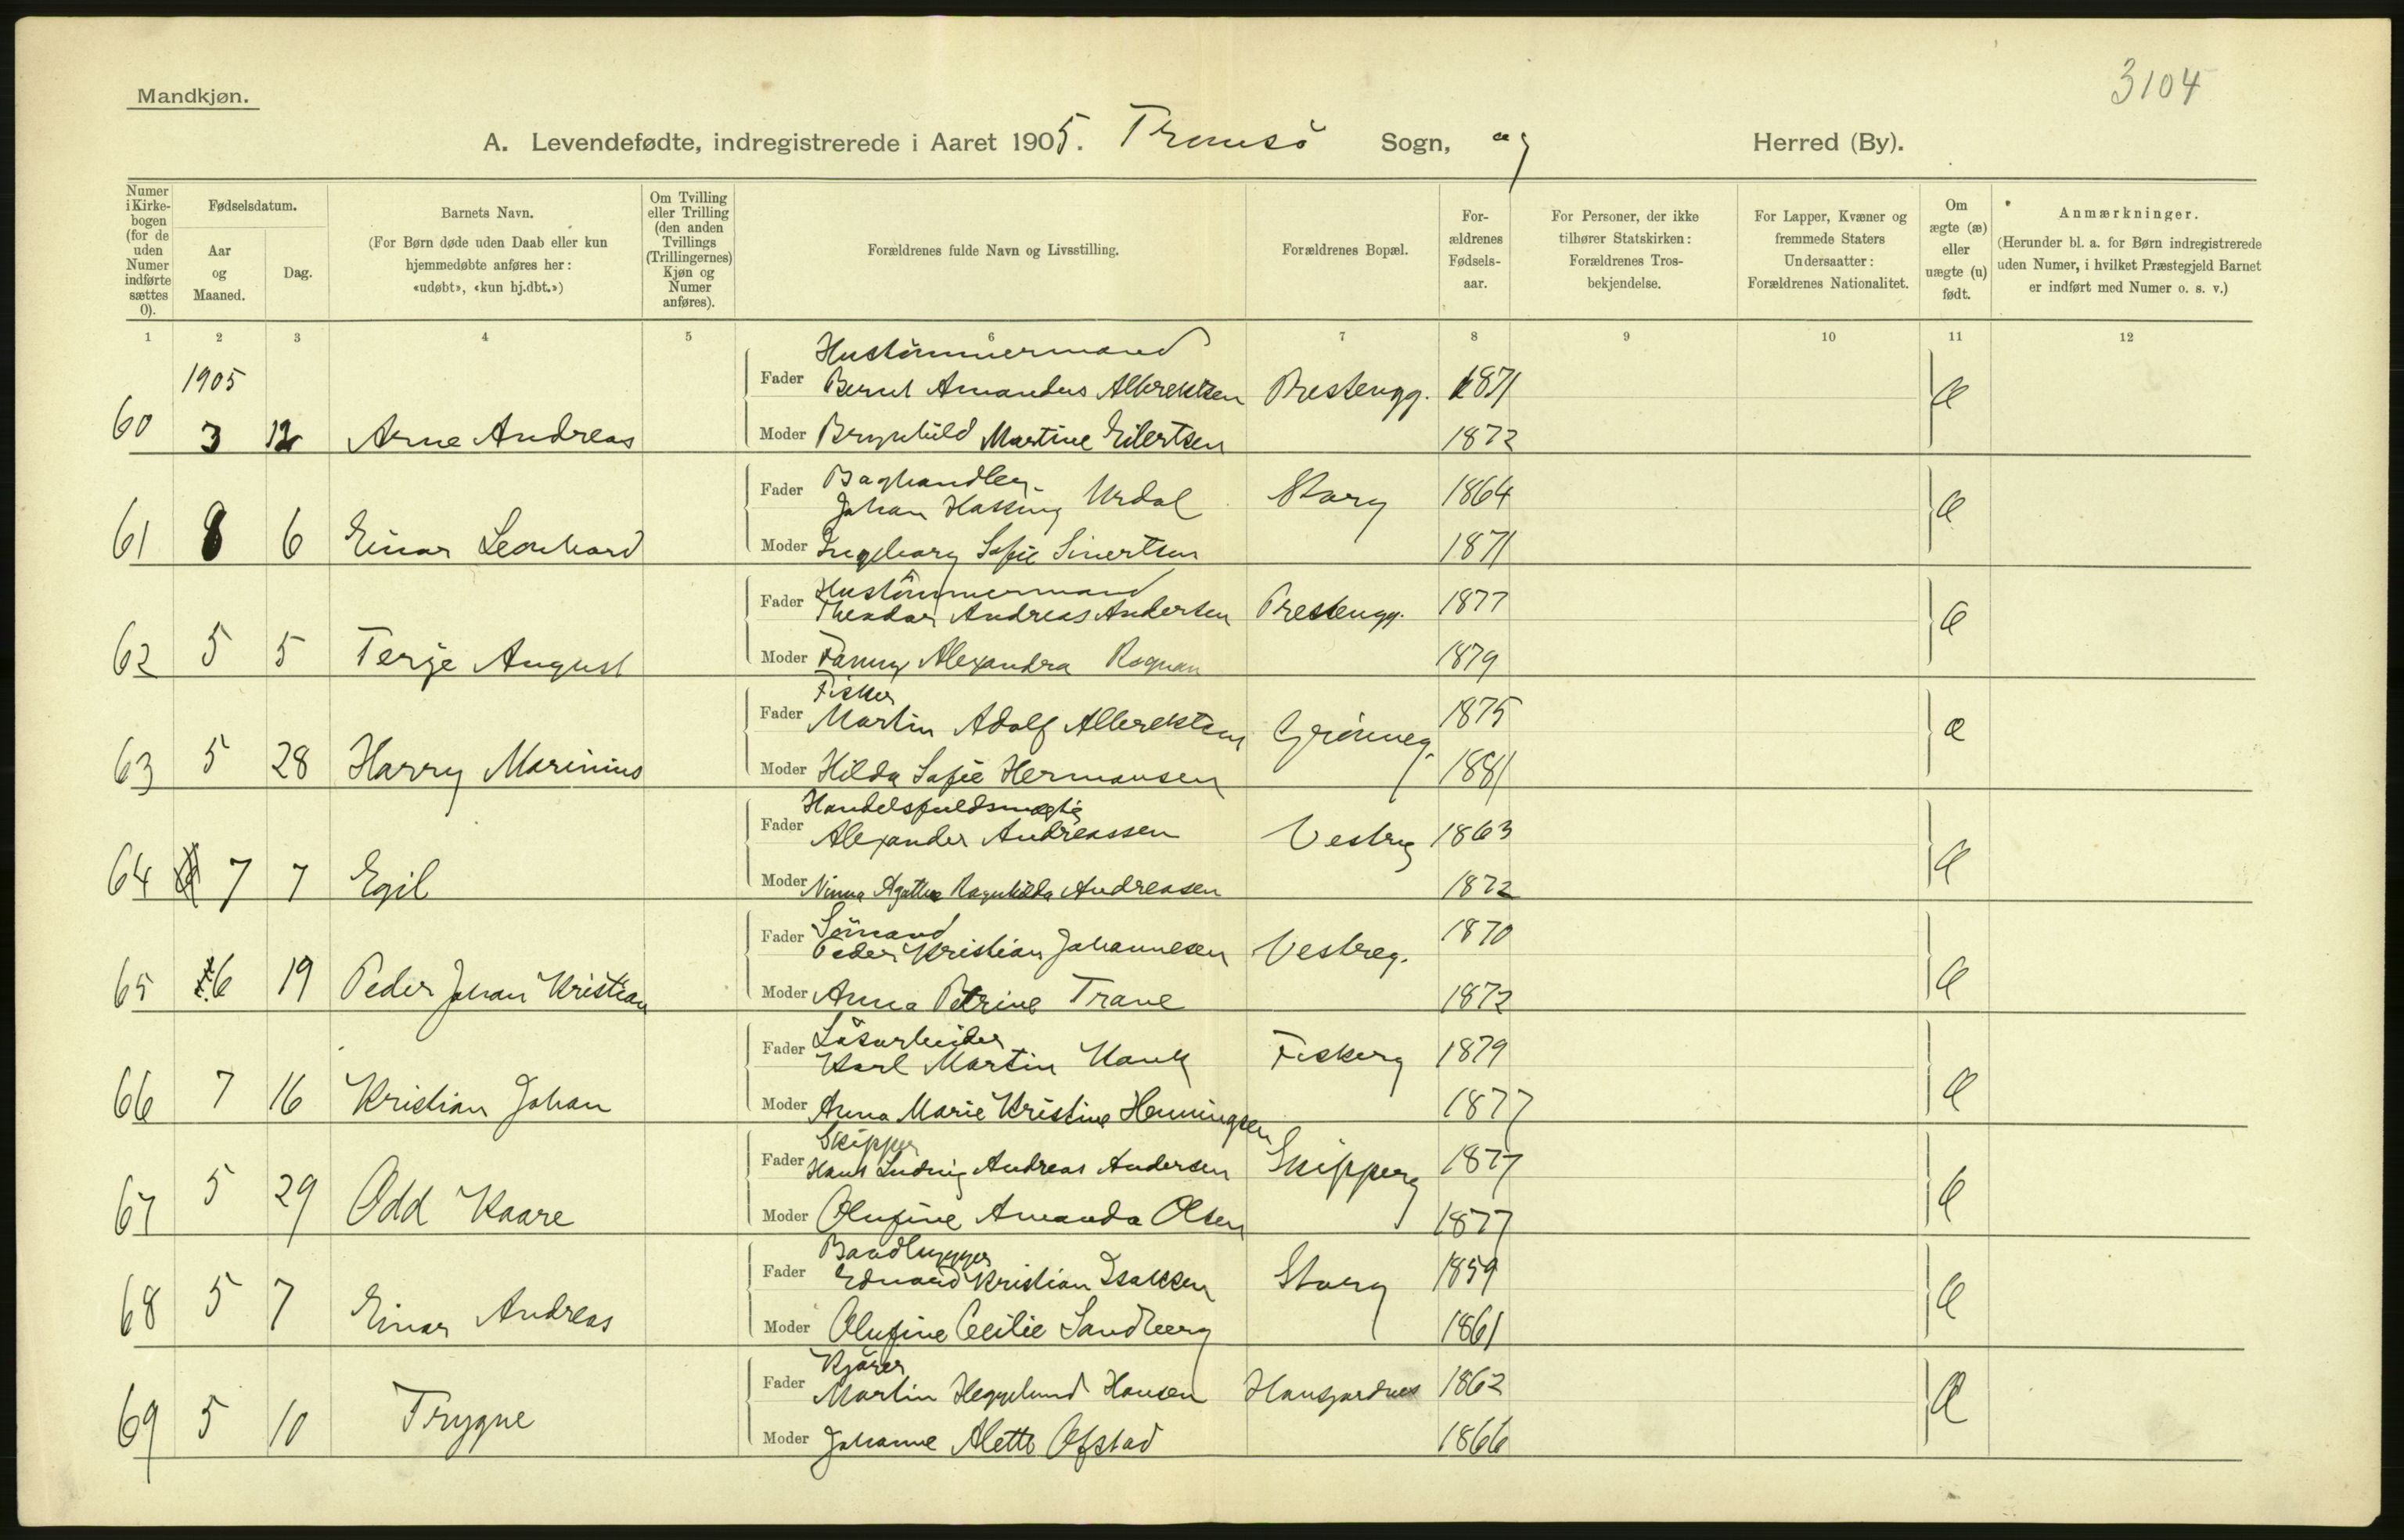 3104
Mandkjøn.
A. Levendefødte, indregistrerede i Aaret 1905. Tromsö Sogn, og Herred (By).
Numer i Kirkebogen (for de uden Numer indførte sættes 0).
Fødselsdatum.
Aar og Maaned.
Dag.
Barnets Navn.
(For Børn døde uden Daab eller kun hjemmedøbte anføres her: «udøbt», «kun hj.dbt.»)
Om Tvilling eller Trilling (den anden Tvillings (Trillingernes) Kjøn og Numer anføres).
Forældrenes fulde Navn og Livsstilling.
Forældrenes Bopæl.
For-ældrenes Fødsels-aar.
For Personer, der ikke tilhører Statskirken: Forældrenes Tros-bekjendelse.
For Lapper, Kvæner og fremmede Staters Undersaatter: Forældrenes Nationalitet.
Om ægte (æ) eller uægte (u) født.
Anmærkninger.
(Herunder bl. a. for Børn indregistrerede uden Numer, i hvilket Præstegjeld Barnet er indført med Numer o. s. v.)
1 2 3 4 5 6 7 8 9 10 11 12
1905
Hustömmermand
Fader Bernt Amandus Albrektsen Prestengg. 1871 æ
60 3 12 Arne Andreas Moder Brynhild Martine Eilertsen 1872
Baghandler
Fader Johan Hassing Urdal Storg 1864 æ
61 8 6 Einar Leonhard Moder Ingeborg Sofie Sivertsen 1871
Hustömmermand
Fader Theodor Andreas Andersen Prestengg. 1877 æ
62 5 5 Terje August Moder Fanny Alexandra Rognan 1879
Fisker
Fader Martin Adolf Albrektsen Grönneg. 1875 æ
63 5 28 Harry Marinius Moder Hilda Sofie Hermansen 1881
Handelsfuldmægtig
Fader Alexander Andreassen Vestreg 1863 æ
64 7 7 Egil Moder Ninna Agathe Ragnhilda Andreasen 1872
Sömand
Fader Peder Kristian Johannesen Vestreg. 1870 æ
65 6 19 Peder Johan Kristian Moder Anna Petrine Trane 1872
Lösarbeider
Fader Karl Martin Hauk Fiskerg 1879 æ
66 7 16 Kristian Johan Moder Anna Marie Kristine Henningsen 1877
Skipper
Fader Hans Ludvig Andreas Andersen Skipperg 1877 æ
67 5 29 Odd Kaare Moder Olufine Amanda Olsen 1877
Baadbygger
Fader Edvard Kristian Isaksen Storg 1859 æ
68 5 7 Einar Andreas Moder Olufine Cecilie Sandberg 1861
Kjörer
Fader Martin Heggelund Hansen Hansjordnes 1862 æ
69 5 10 Trygve Moder Johanne Alette Ofstad 1866